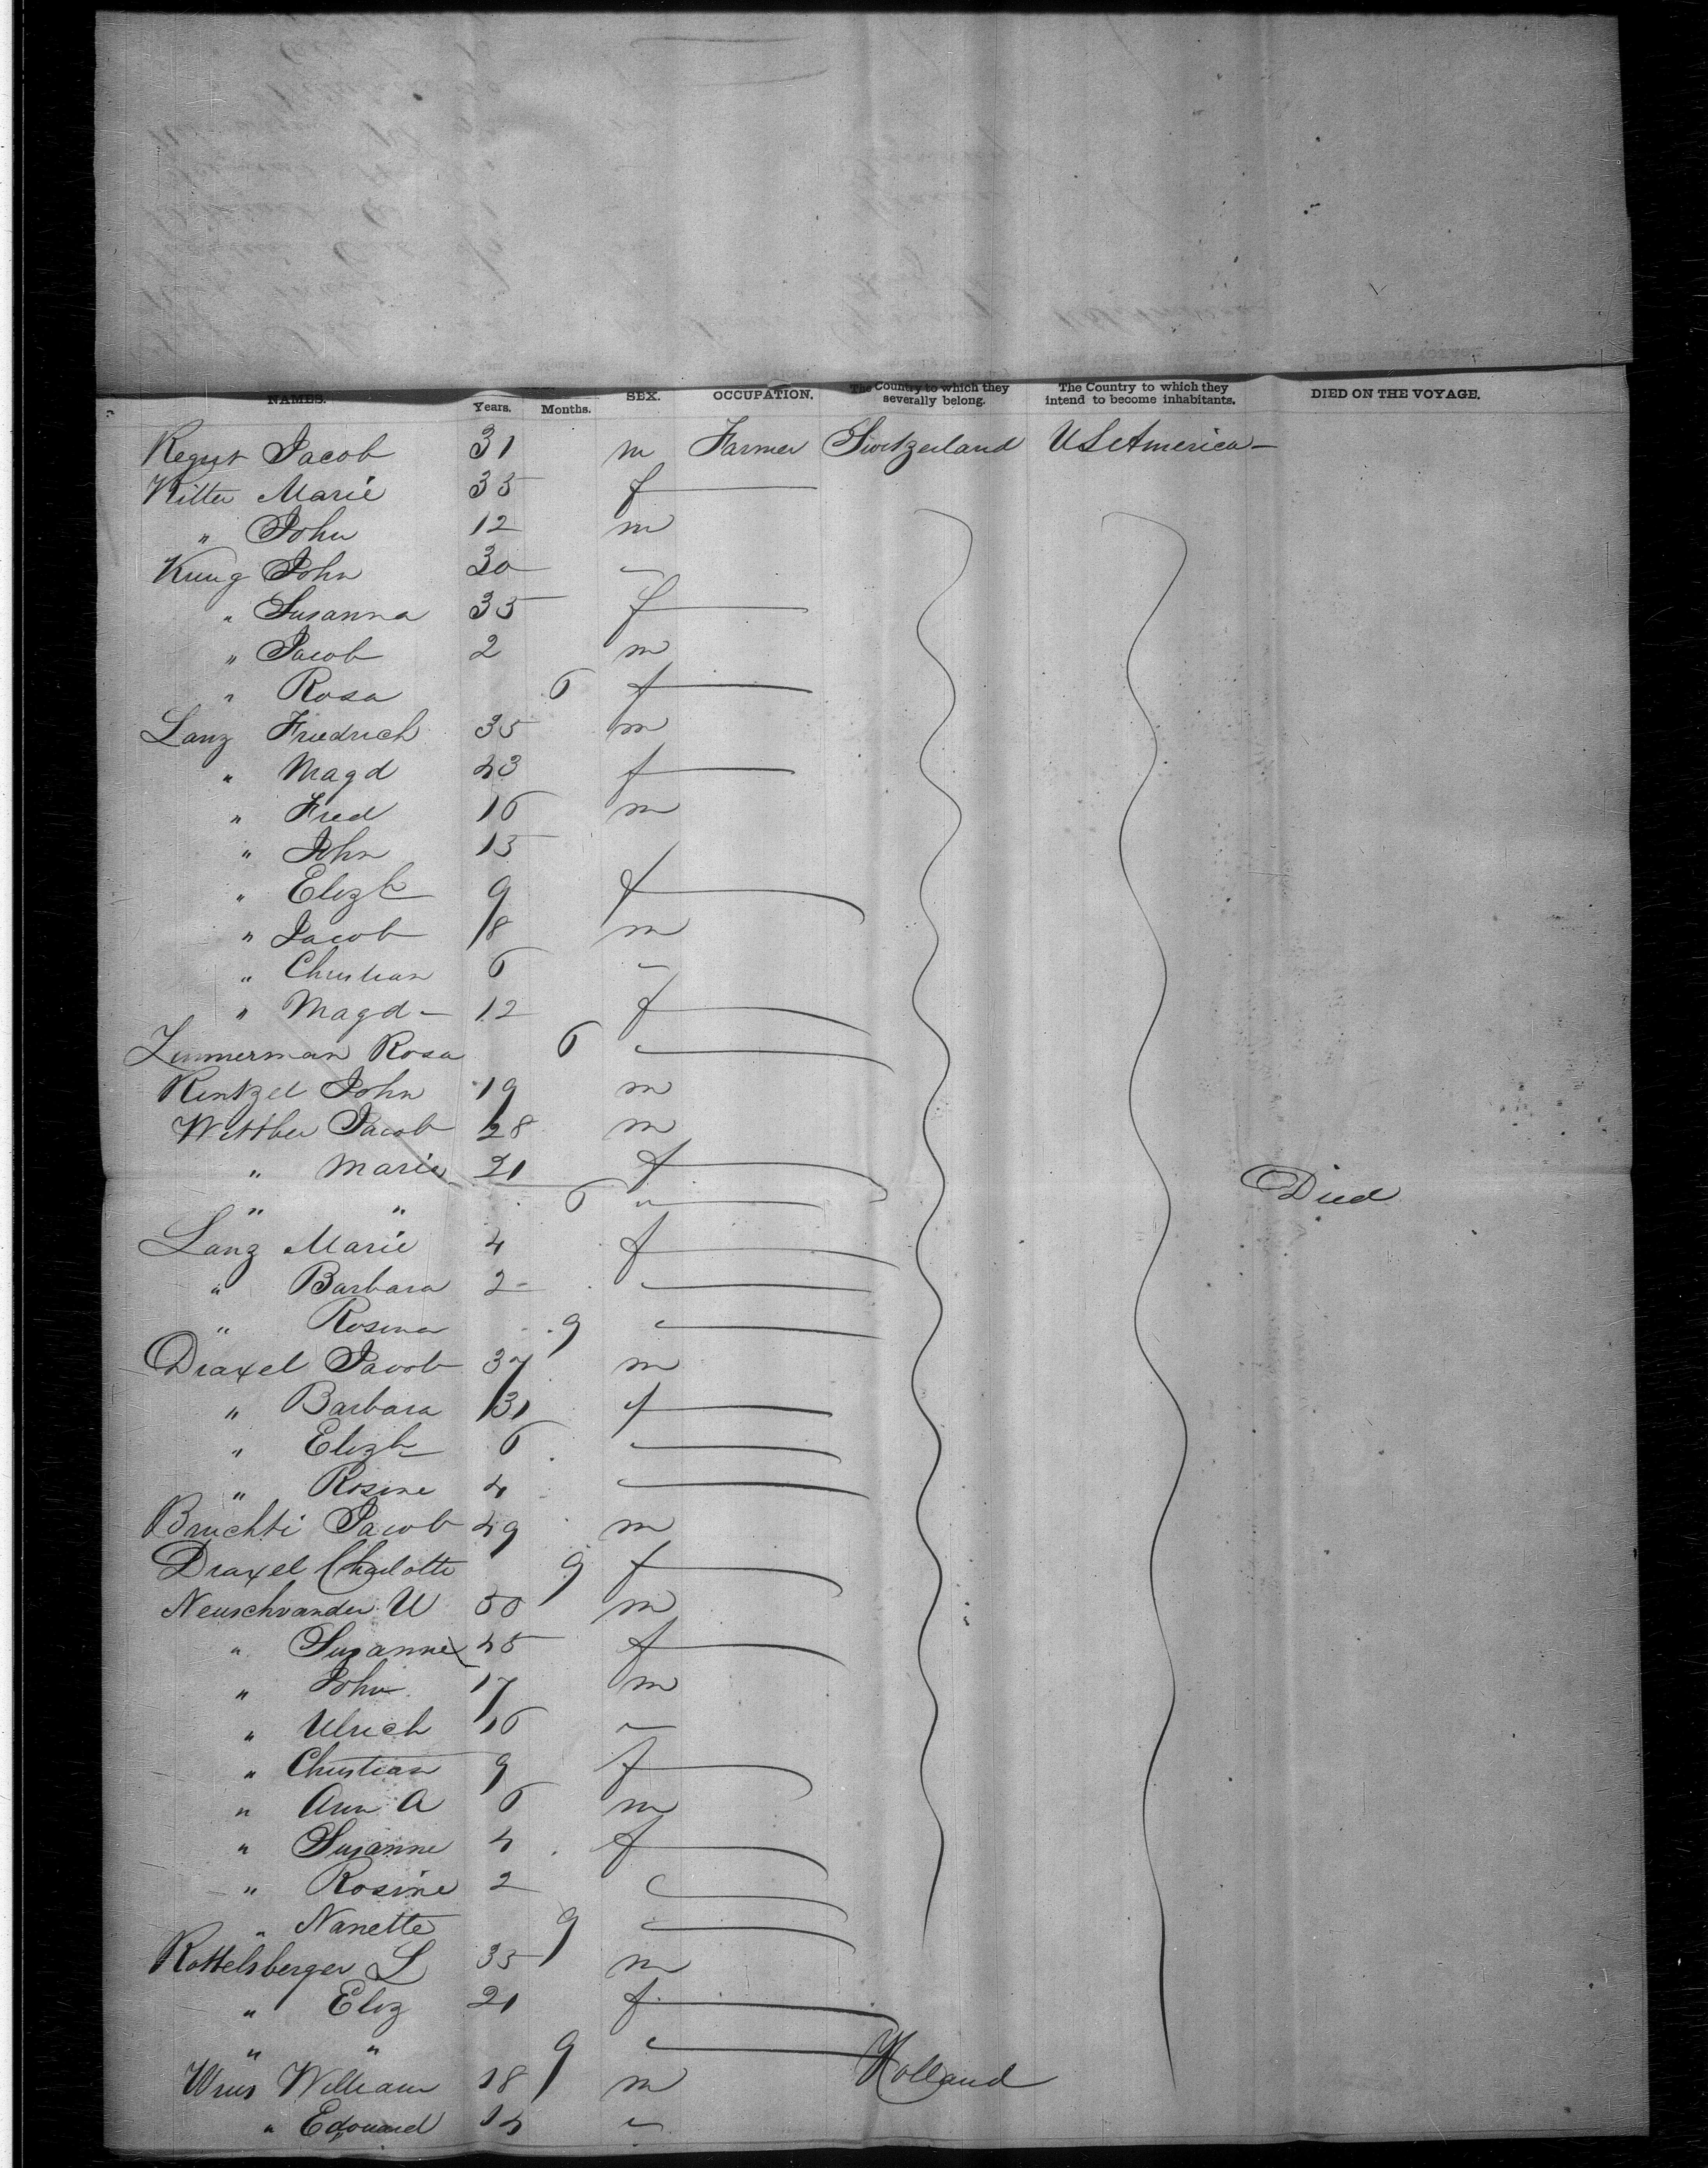 NAMES. Years. Months. SEX. OCCUPATION. The Country to which they severally belong. The Country to which they intend to become inhabitants. DIED ON THE VOYAGE.
Jacob 31 m Farmer Switzerland US America —
Ritter Marie 35 f
" John 12 m
Kung John 30 "
" Susanna 35 f
" Jacob 2 m
" Rosa 6 f
Lanz Friedrich 35 m
" Magd 43 f
" Fred 16 m
" John 15
" Elizh 9 f
" Jacob 18 m
" Christian 6 "
" Magd — 12 f
Zimmerman Rosa 6 "
Rintzel John 19 m
Jacob 28 m
" Marie 21 f
" " 6 " Died
Lanz Marie 4 f
" Barbara 2 "
" Rosina 9 "
Draxel Jacob 37 m
" Barbara 31 f
" Elizh 6 "
" Rosine 4 "
Bruchti Jacob 49 m
Draxel Charlotte 9 f
Neuschvander U 50 m
" Susanne 45 f
" John 17 m
" Ulrich 16 "
" Christian 9 f
" Ann A 6 m
" Susanne 4 f
" Rosine 2 "
" Nanette 9 "
Rottelsberger L 35 m
" Eliz 21 f
" " 9 "
William 18 m Holland
" Edouard 14 "